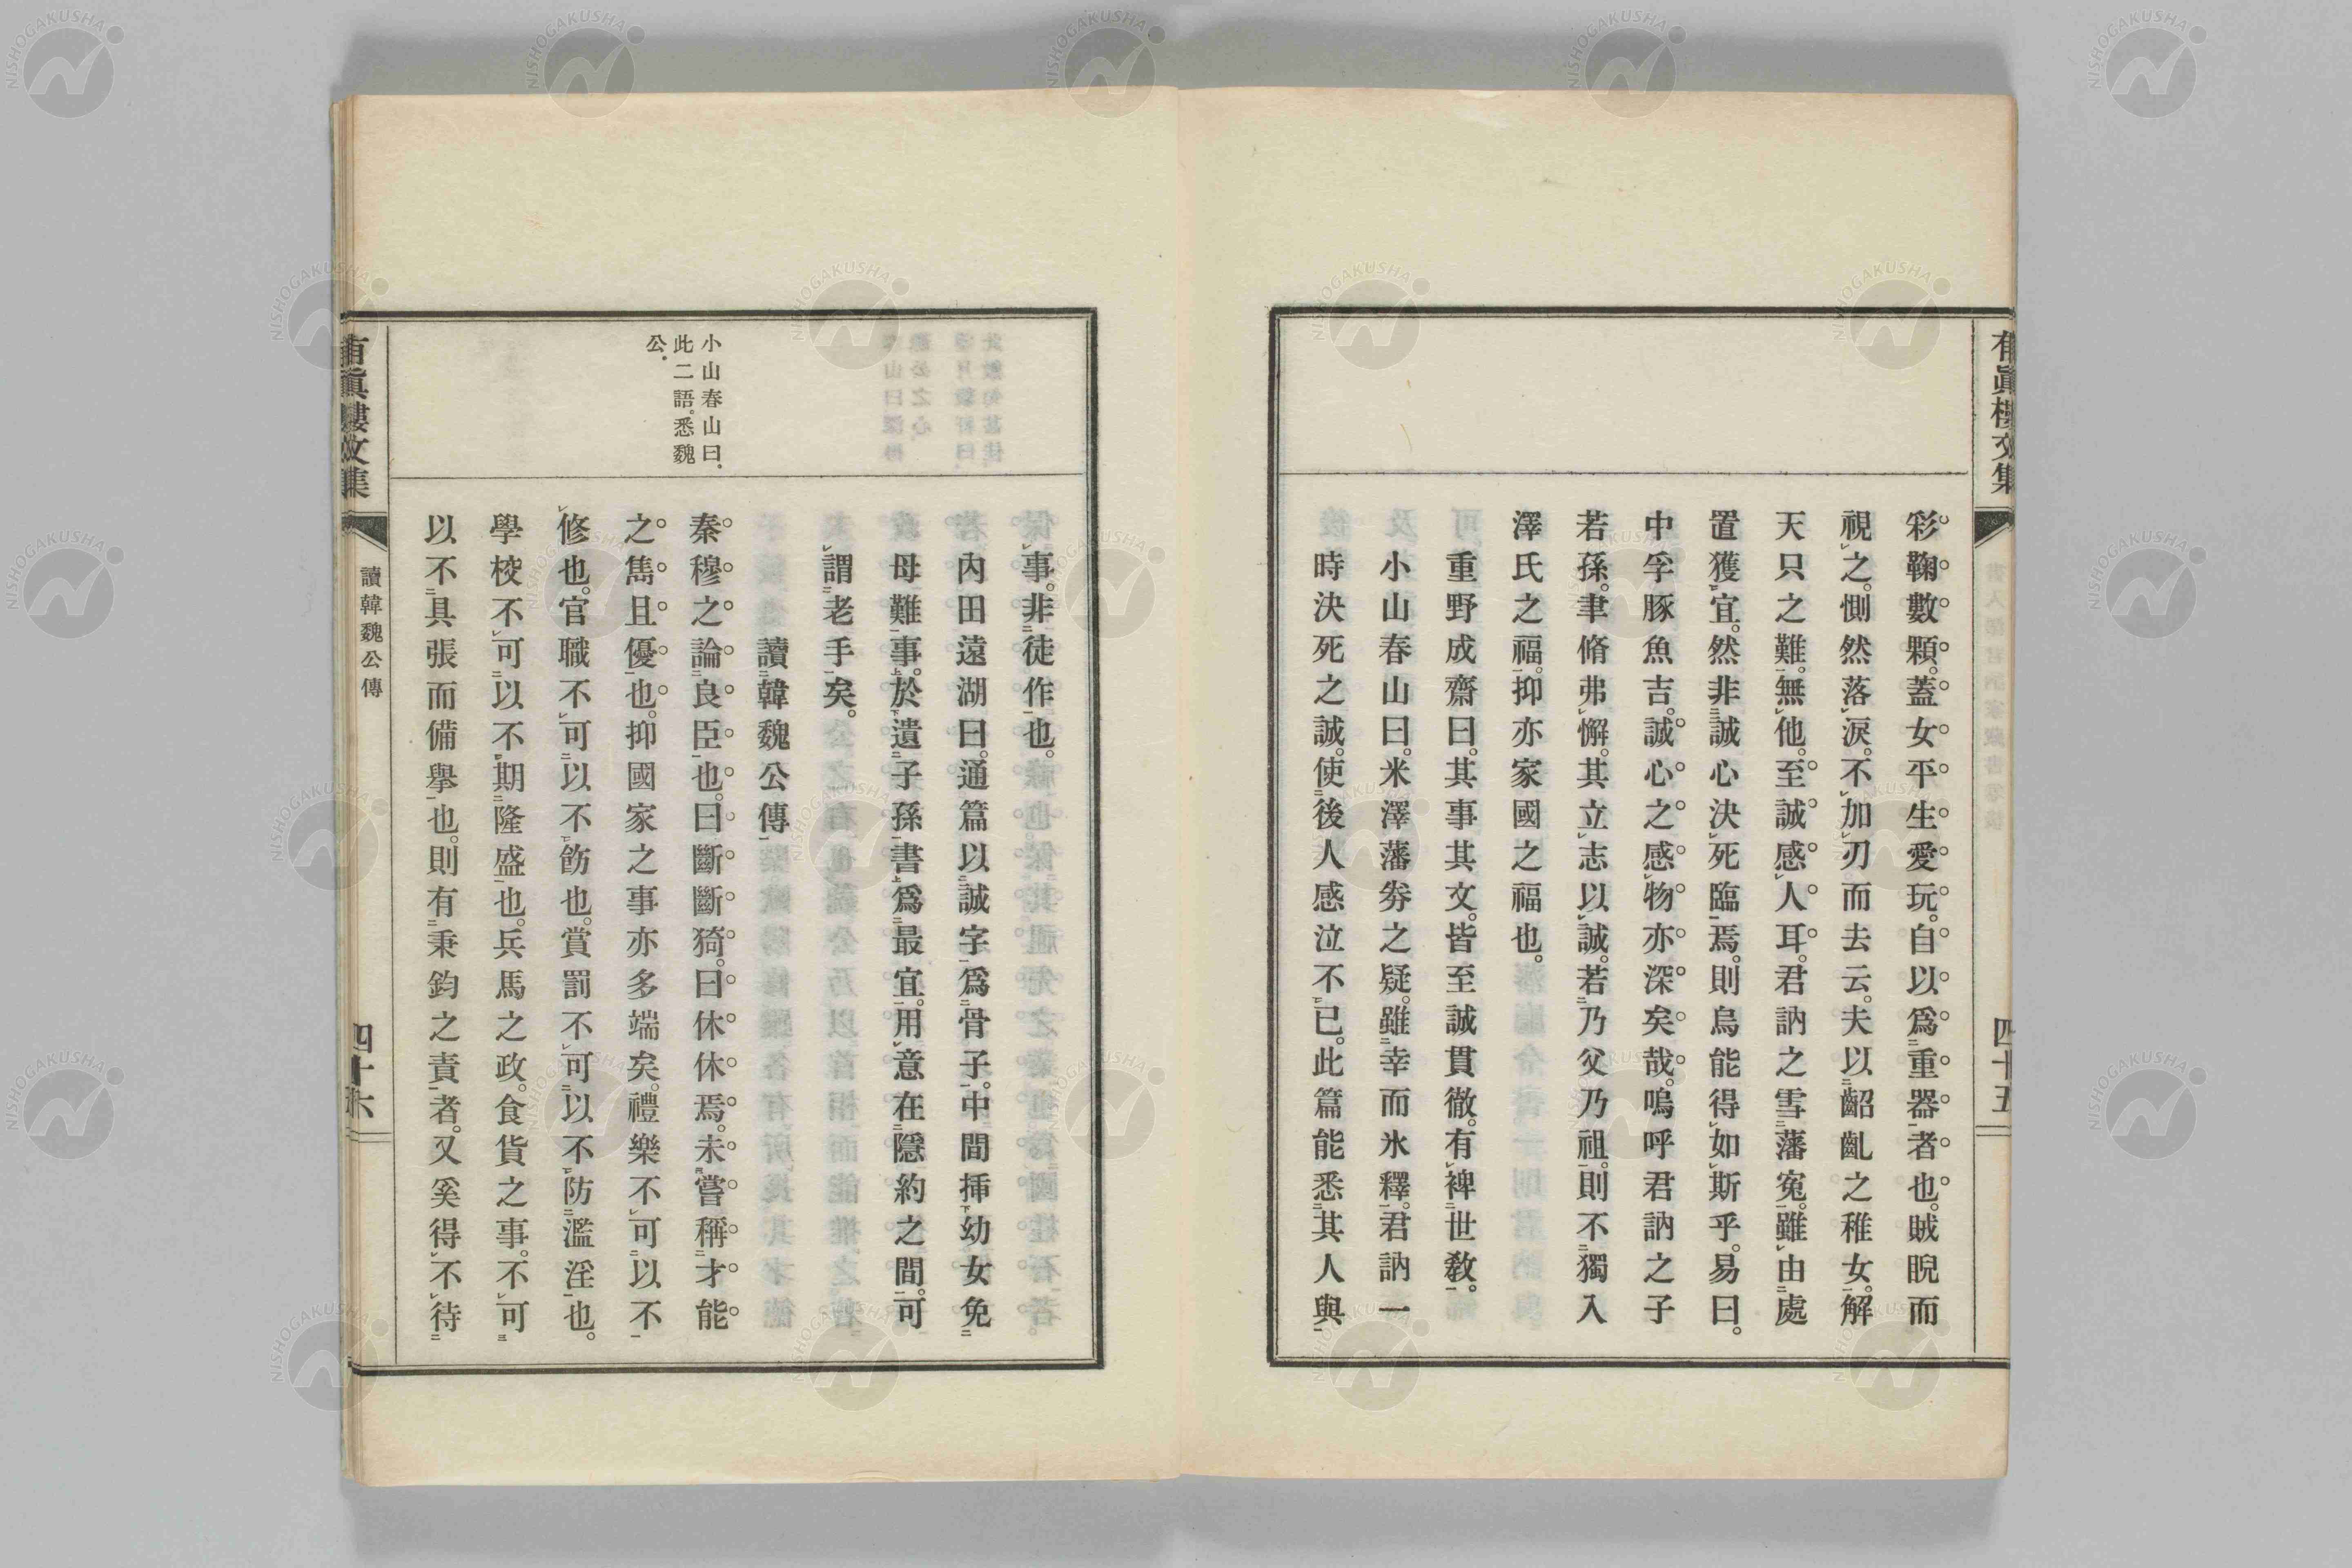 有眞樓文集
四十五
彩鞠數顆。蓋女平生愛玩。自以爲重器者也。賊睨而
視之。惻然落淚。不加刃而去云。夫以齠齓之稚女。解
天只之難。無他。至誠感人耳。君訥之雪藩冤。雖由處
置獲宜。然非誠心決死臨焉。則烏能得如斯乎。易曰。
中孚豚魚吉。誠心之感物亦深矣哉。嗚呼君訥之子
若孫。聿脩弗懈。其立志以誠。若乃父乃祖。則不獨入
澤氏之福。抑亦家國之福也。
重野成齋曰。其事其文。皆至誠貫徹。有裨世敎。
小山春山曰。米澤藩劵之疑。雖幸而氷釋。君訥一
時決死之誠。使後人感泣不已。此篇能悉其人與
事。非徒作也。
內田遠湖曰。通篇以誠字爲骨子。中間揷幼女免
母難事。於遺子孫書爲最宜。用意在隱約之間。可
謂老手矣。
讀韓魏公傳
秦穆之論良臣也。曰斷斷猗。曰休休焉。未嘗稱才能
之雋且優也。抑國家之事亦多端矣。禮樂不可以不
修也。官職不可以不飭也。賞罰不可以不防濫淫也。
學校不可以不期隆盛也。兵馬之政。食貨之事。不可
以不具張而備擧也。則有秉鈞之責者。又奚得不待
小山春山曰。
此二語。悉魏
公。
有眞樓文集
讀韓魏公傳
四十六
NISHOGAKUSHA